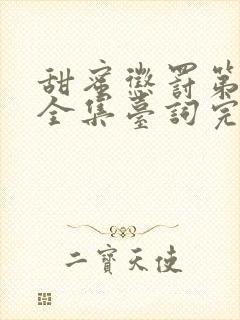 甜蜜懲罰第
全集臺詞完
二寶天使